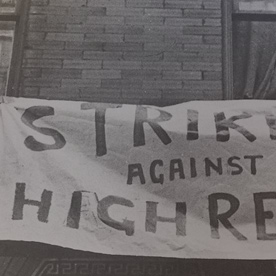 STRIK
AGAINST
HIGH RE